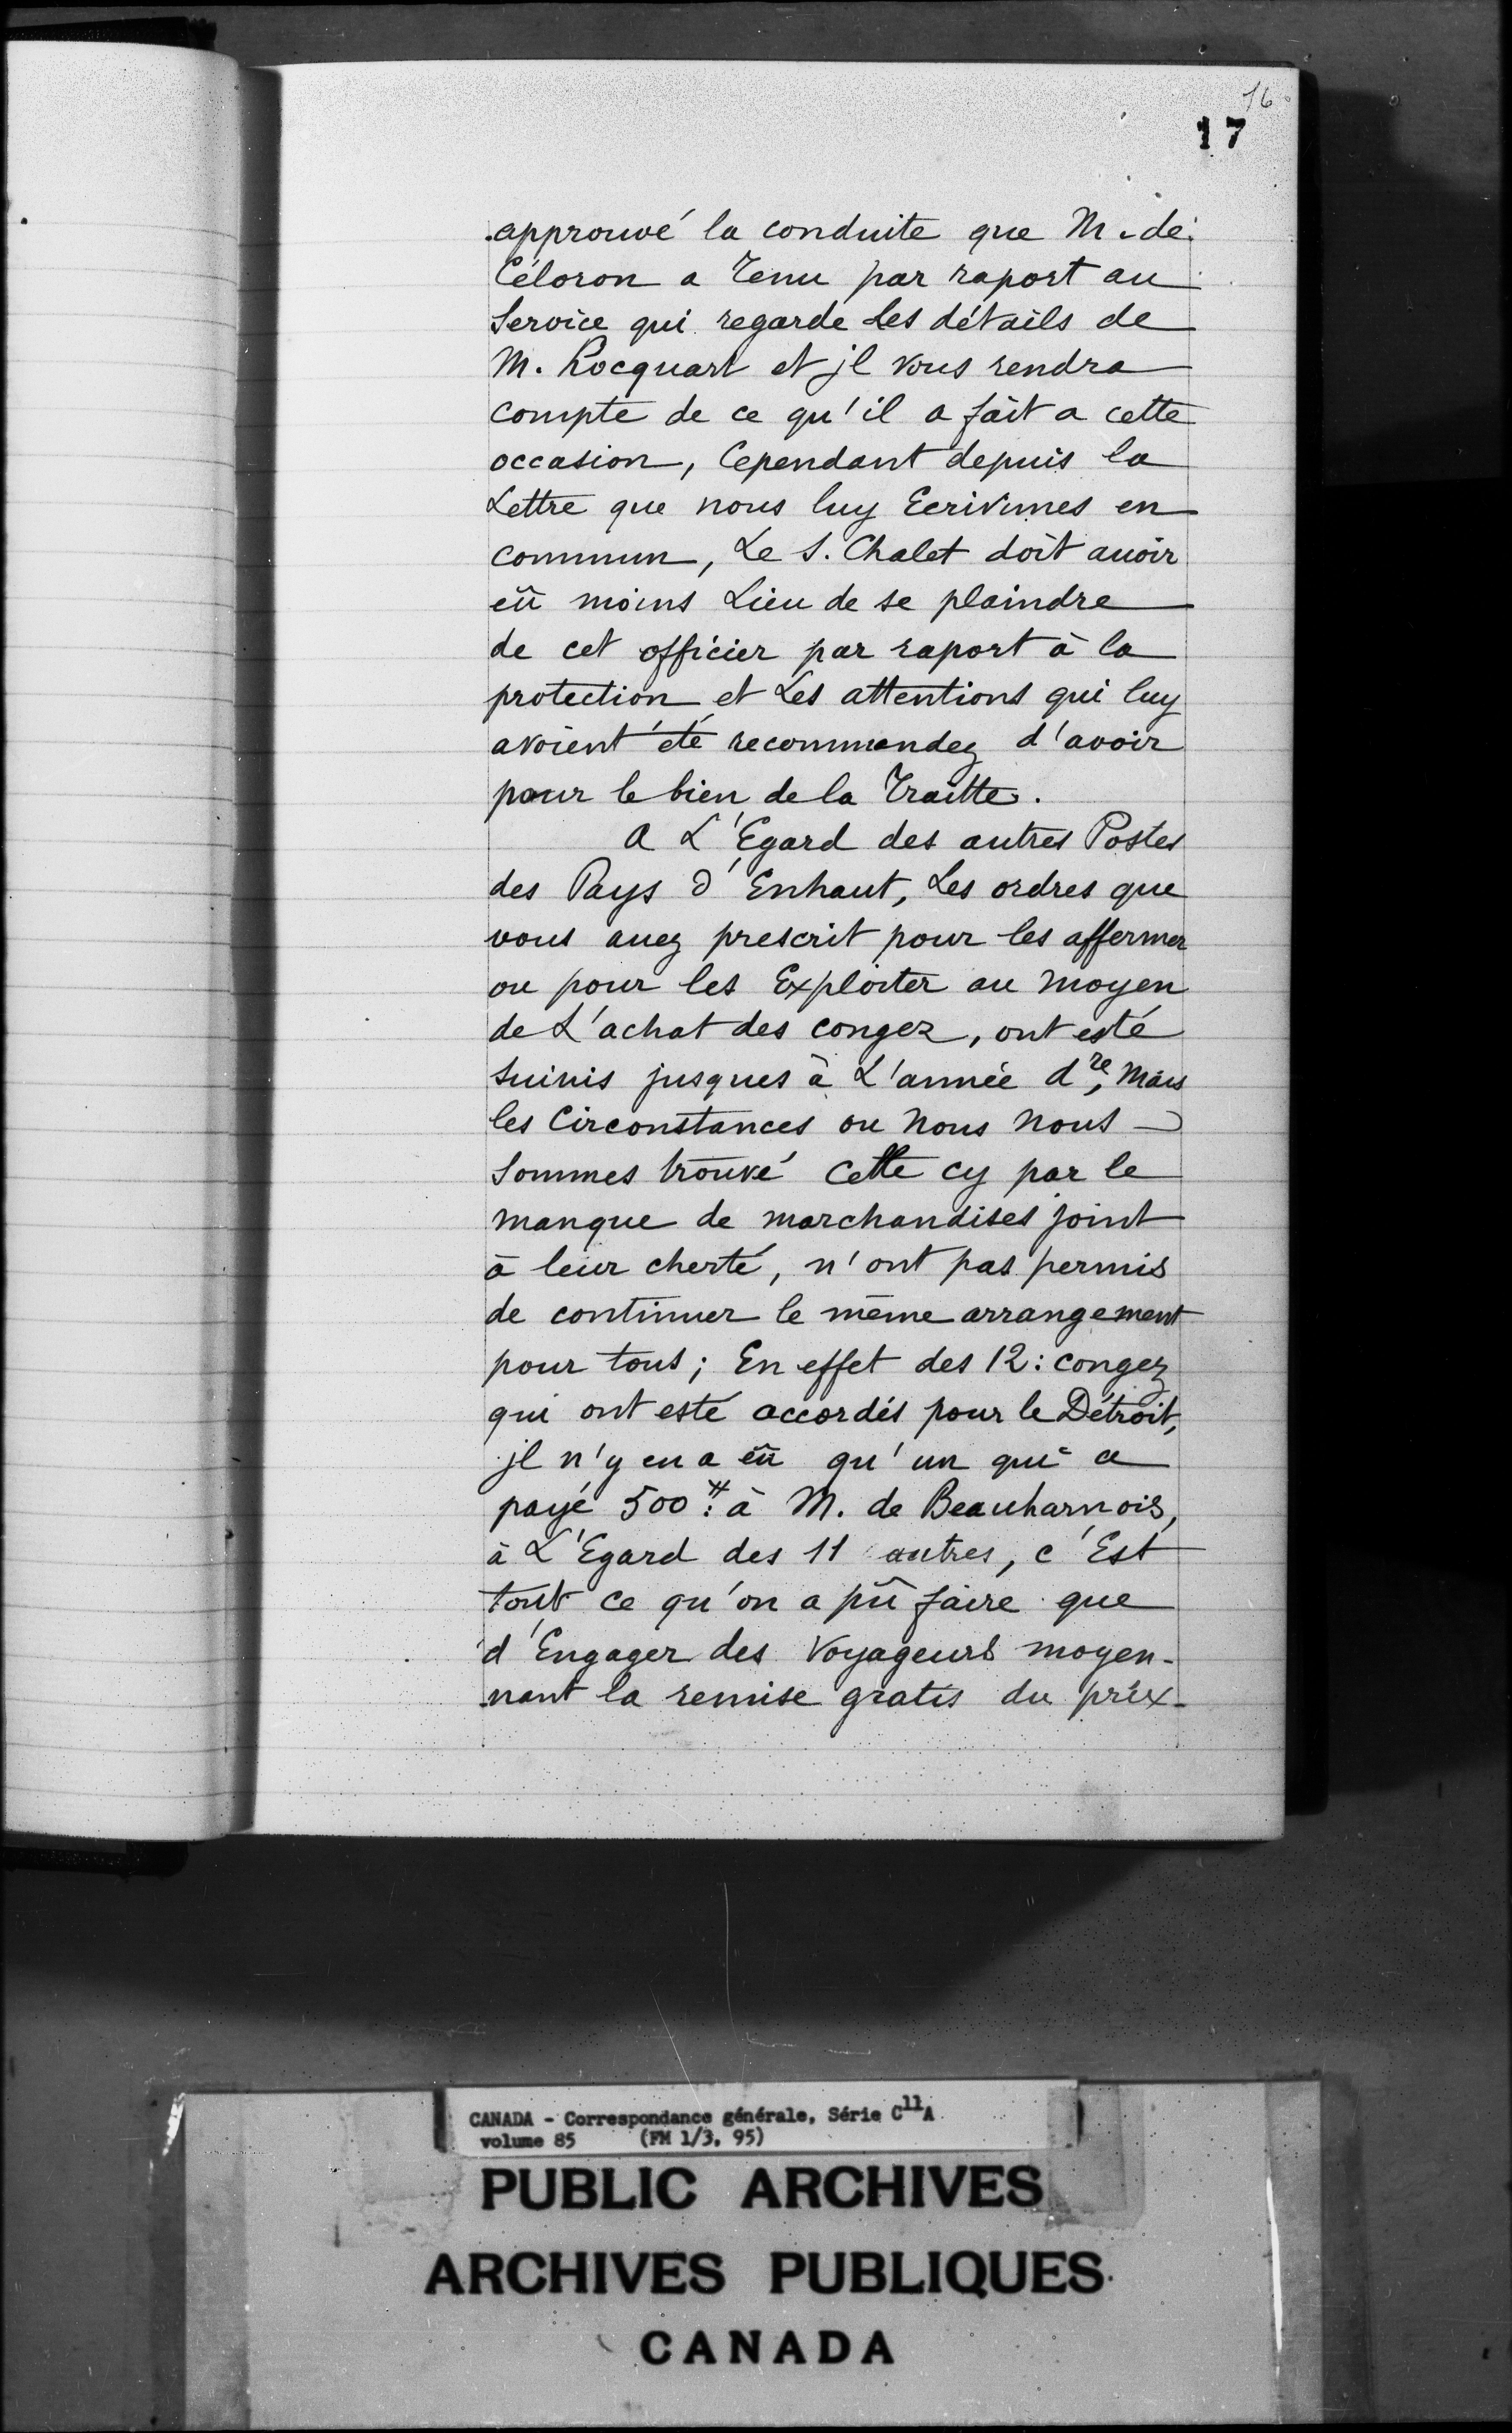 16
17
approuvé la conduite que M. de
Céloron a tenu par raport au
Service qui regarde Les détails de
M. hocquart et jl vous rendra
compte de ce qu'il a fait a cette
occasion, Cependant depuis la
Lettre que nous luy Ecrivimes en
commun, Le S. Chalet doit auoir
eû moins Lieu de se plaindre
de cet officier par raport à la
protection et Les attentions qui luy
avoient été recommandez d'avoir
pour le bien de la Traitte.
A L'Egard des autres Postes
des Pays d'Enhaut, Les ordres que
vous auez prescrit pour les affermer
ou pour les Exploiter au moyen
de L'achat des congez, ont esté
suiuis jusques à L'année dre, Mais
les Circonstances ou Nous Nous
Sommes trouvé Cette cy par le
manque de marchandises joint
à leur cherté, n'ont pas permis
de continuer le même arrangement
pour tous; En effet des 12: congez
qui ont esté accordés pour le Détroit,
jl n'y en a eû qu'un qui a
payé 500 ⁠# à M. de Beauharnois,
à L'Egard des 11 autres, c'Est
tout ce qu'on a pû faire que
d'Engager des Voyageurs moyen-
-nant la remise gratis du prix-
CANADA - Correspondance générale, Série C11A
volume 85 (FM 1/3, 95)
PUBLIC ARCHIVES
ARCHIVES PUBLIQUES
CANADA